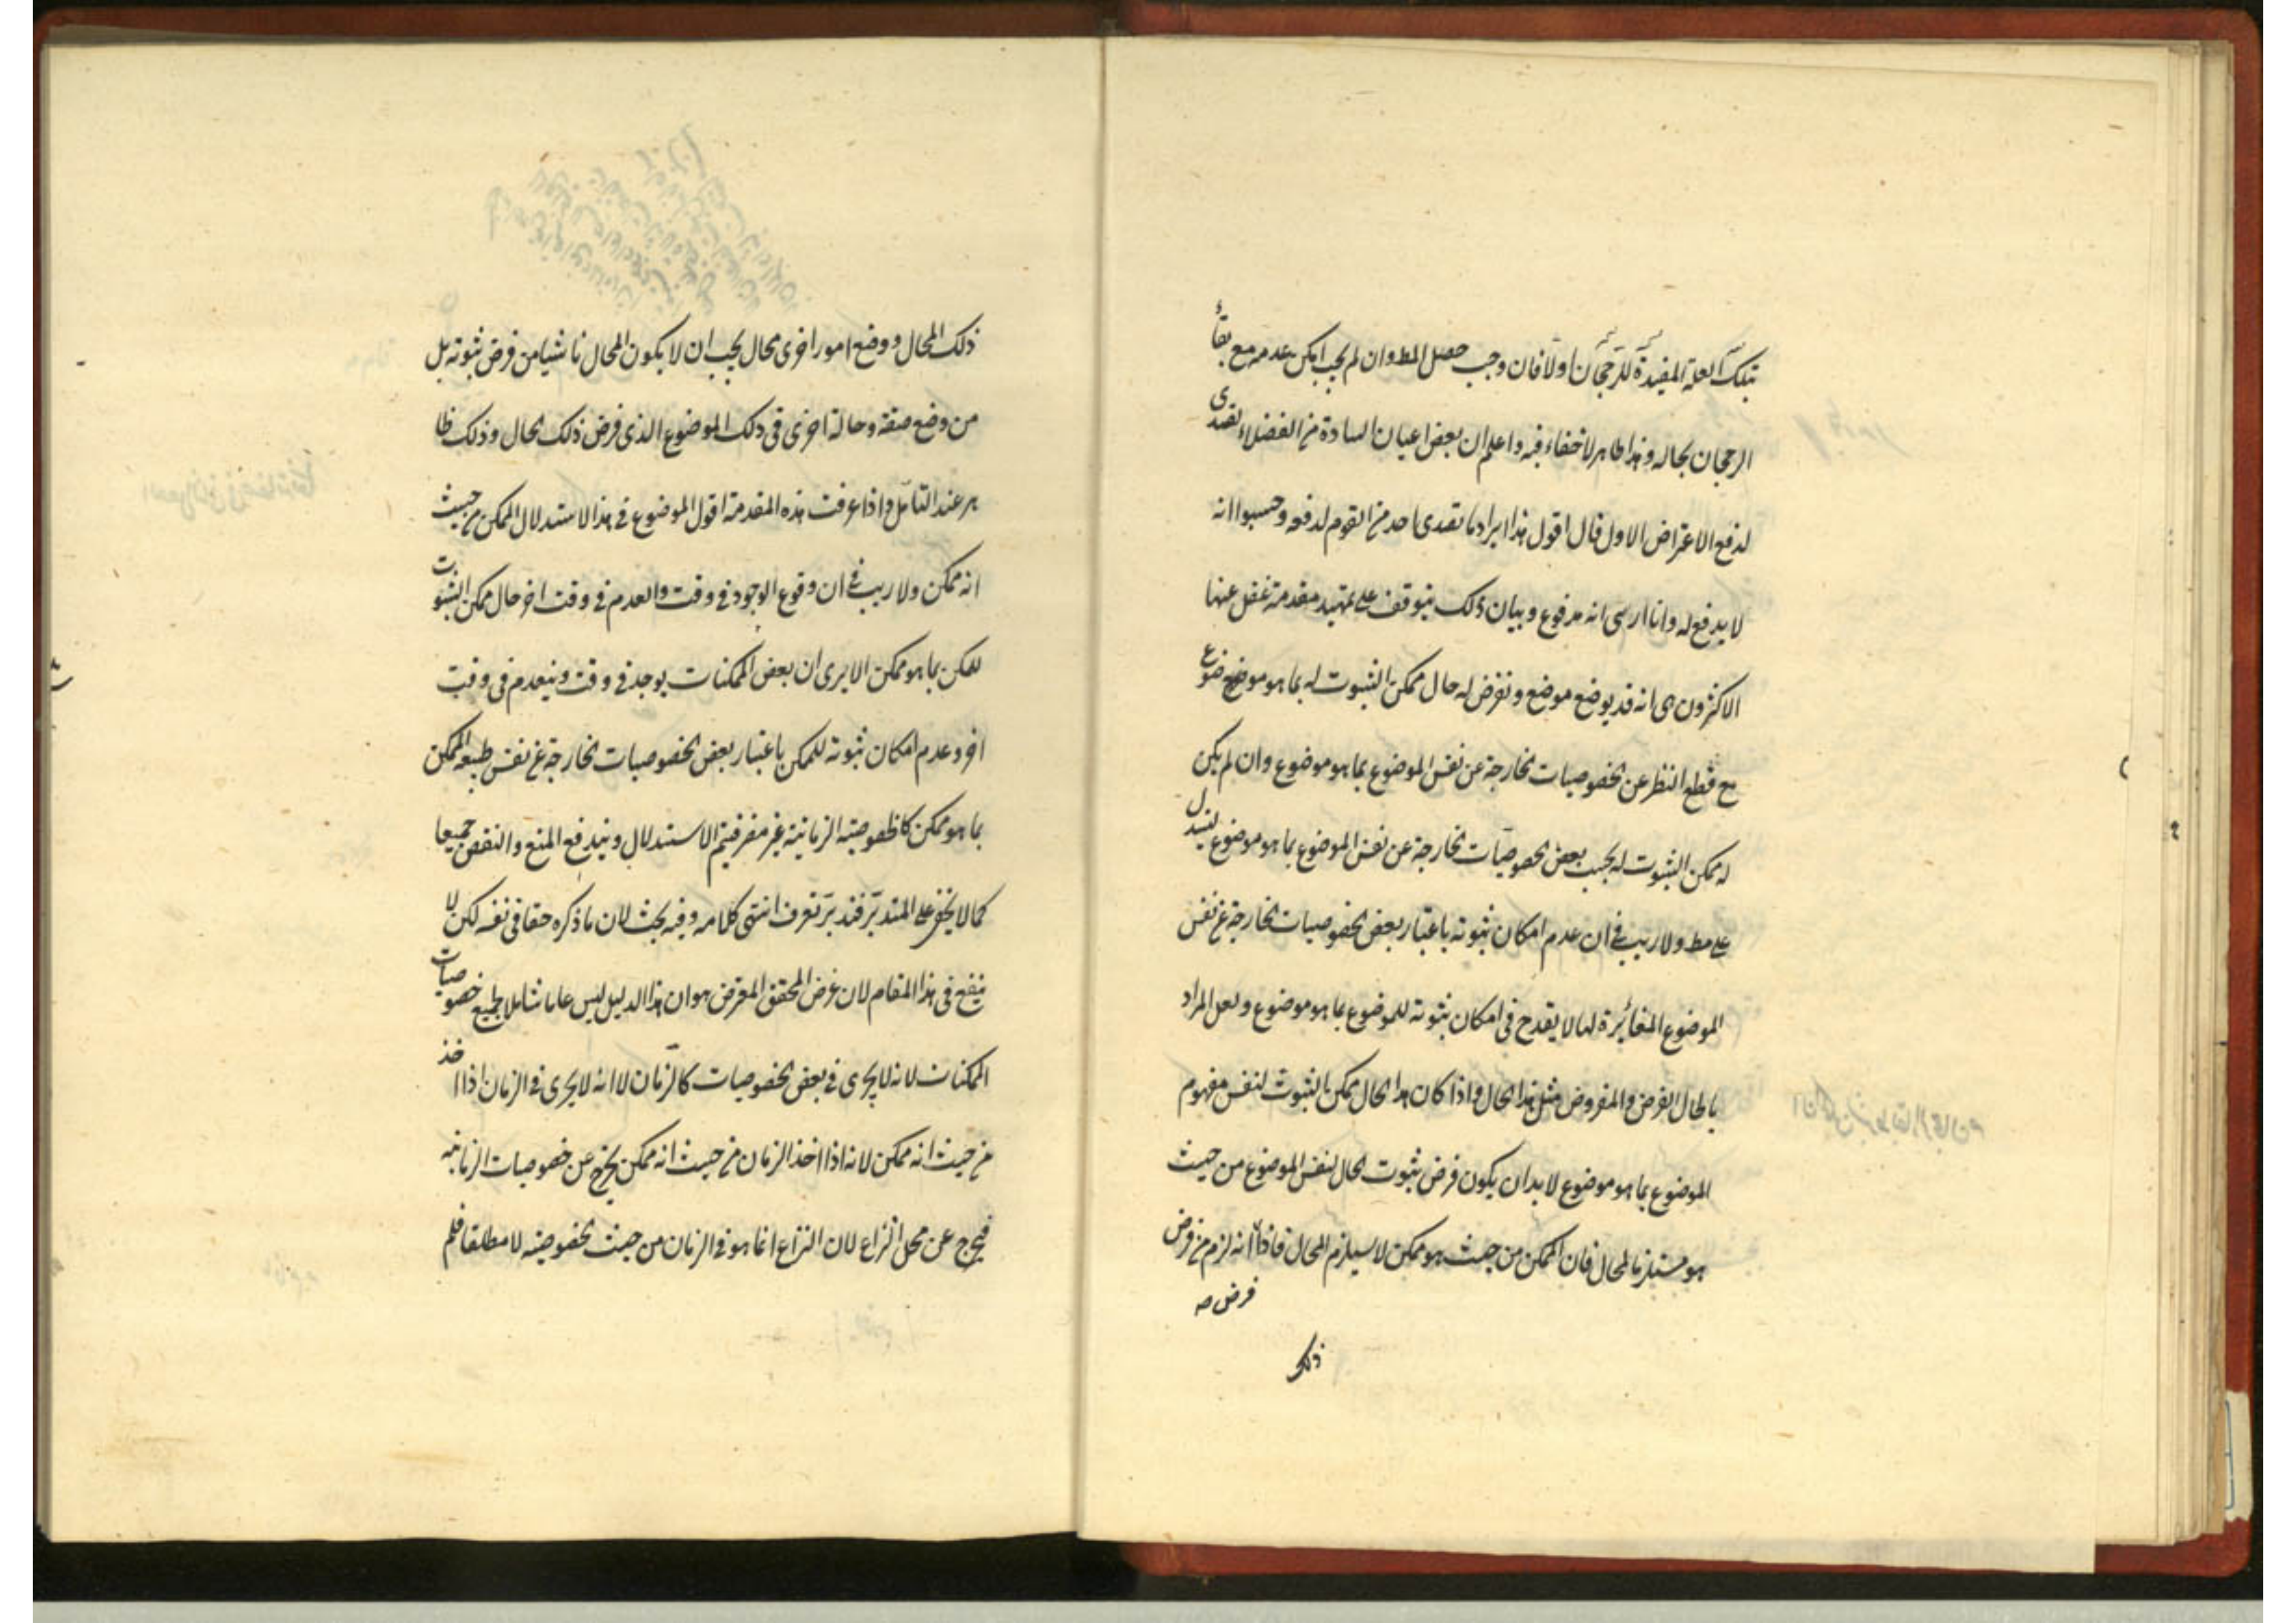 بتلك العلة المفيدة للرجحان اولا فان وجب حصل المط وان لم يجب امكن عدمه مع بقاء
الرجحان بحاله وهذا ظاهر لا خفاء فيه واعلم ان بعض اعيان السادة من الفضلاء تصدى
لدفع الاعتراض الاول قال اقول هذا ايراد ما تصدى احد من القوم لدفعه وحسبوا انه
لا يدفع له وانا ارى انه مدفوع وبيان ذلك يتوقف على تمهيد مقدمة غفل عنها
الاكثرون هى انه قد يوضع موضع ونفرض له حال ممكن الثبوت له بما هو موضوع
مع قطع النظر عن الخصوصيات الخارجة عن نفس الموضوع بما هو موضوع وان لم يكن
له ممكن الثبوت له بحسب بعض الخصوصيات الخارجة عن نفس الموضوع بما هو موضوع ليستدل
على مط ولا ريب فى ان عدم امكان ثبوته باعتبار بعض الخصوصيات الخارجة عن نفس
الموضوع المغائرة لها لا يقدح فى امكان ثبوته للموضوع بما هو موضوع ولعل المراد
بالحال الفرض والمفروض مثل هذا الحال واذا كان هذا الحال ممكن الثبوت لنفس مفهوم
الموضوع بما هو موضوع لابد ان يكون فرض ثبوت الحال لنفس الموضوع من حيث
هو مستلزما لمحال فان الممكن من حيث هو ممكن لا يستلزم المحال فاذا انه لزم من فرض
فرض صه
ذلك
ذلك المحال ووضع امور اخرى محال يجب ان لا يكون المحال ناشيا من فرض ثبوته بل
من وضع صفة وحالة اخرى فى ذلك الموضوع الذى فرض ذلك الحال وذلك ظا
هر عند التامل واذا عرفت هذه المقدمة اقول الموضوع فى هذا الاستدلال الممكن من حيث
انه ممكن ولا ريب فى ان وقوع الوجود فى وقت والعدم فى وقت اخر حال ممكن الثبوت
للمكن بما هو ممكن الا يرى ان بعض الممكنات يوجد فى وقت وينعدم فى وقت
اخر وعدم امكان ثبوته للممكن باعتبار بعض الخصوصيات الخارجة عن نفس طبيعة الممكن
بما هو ممكن كالخصوصية الزمانية غير مضر فيتم الاستدلال ويندفع المنع والنقض جميعا
كما لا يخفى على المتدبر فتدبر تعرف انتهى كلامه وفيه بحث لان ما ذكره حقا فى نفسه لكن لا
ينفع فى هذا المقام لان غرض المحقق المعترض هو ان هذا الدليل ليس عاما شاملا لجميع خصوصيات
الممكنات لانه لا يجرى فى بعض الخصوصيات كالزمان لا انه لا يجرى فى الزمان اذا اخذ
من حيث انه ممكن لانه اذا اخذ الزمان من حيث انه ممكن يخرج عن خصوصيات الزمانية
فيخرج عن محل النزاع لان النزاع انما هو فى الزمان من حيث الخصوصية لا مطلقا فلم